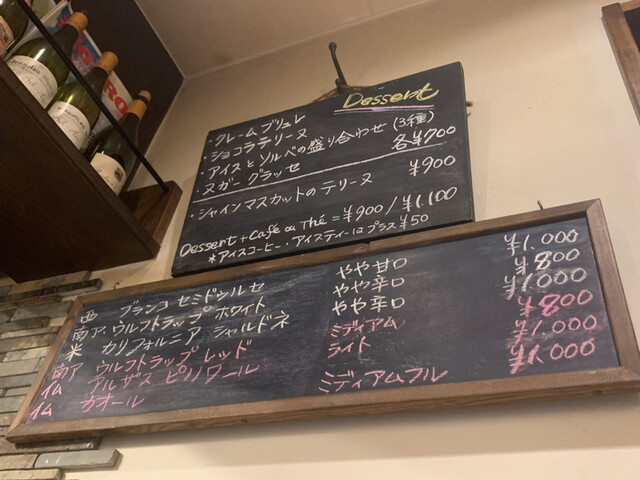 Dessert
・クレームブリュレ
・ショコラテリーヌ
・アイスとソルベの盛り合わせ(3種)
・ヌガーグラッセ 各¥700
・シャインマスカットのテリーヌ ¥900
Dessert + Café ou Thé = ¥900 / ¥1,100
*アイスコーヒー・アイスティーはプラス¥50
西 ブランコ セミドルセ やや甘口 ¥1.000
南ア. ウルフトラップ ホワイト やや辛口 ¥800
米 カリフォルニア シャルドネ やや辛口 ¥1,000
南ア ウルフトラップ レッド ミディアム ¥800
仏 アルザス ピノワール ライト ¥1,000
仏 カオール ミディアムフル ¥1,000